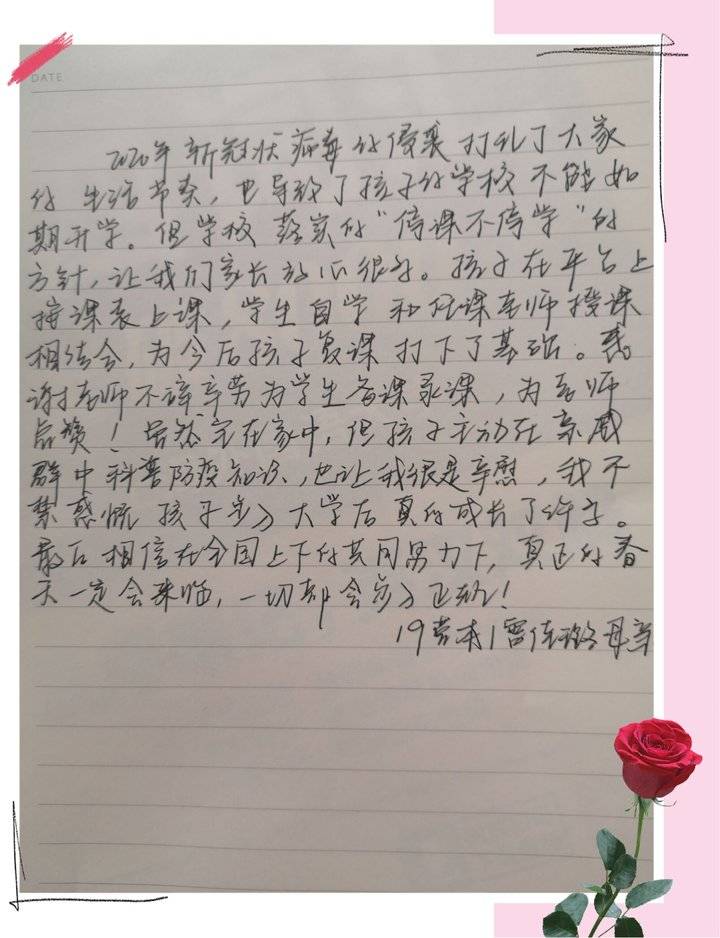 DATE
2020年新冠状病毒的侵袭打乱了大家
的生活节奏,也导致了孩子的学校不能如
期开学。但学校落实的“停课不停学”的
方针,让我们家长放心很多。孩子在平台上
按课表上课,学生自学和任课老师授课
相结合,为今后孩子复课打下了基础。感
谢老师不辞辛劳为学生备课录课,为老师
点赞!虽然宅在家中,但孩子主动在亲戚
群中科普防疫知识,也让我很是辛慰,我不
禁感慨孩子步入大学后真的成长了许多。
最后相信在全国上下的共同努力下,真正的春
天一定会来临,一切都会步入正轨!
19 本1雷佳 母亲